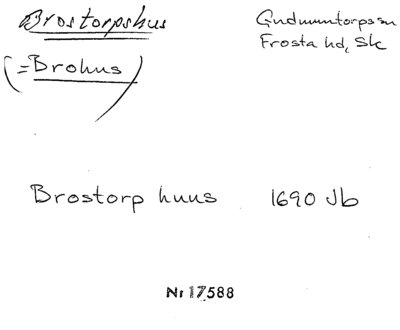 Brostorpshus
Gudmuntorps sn
Frosta hd, Sk
(=Brohus)
Brostorp huus 1690 Jb
Nr 17588